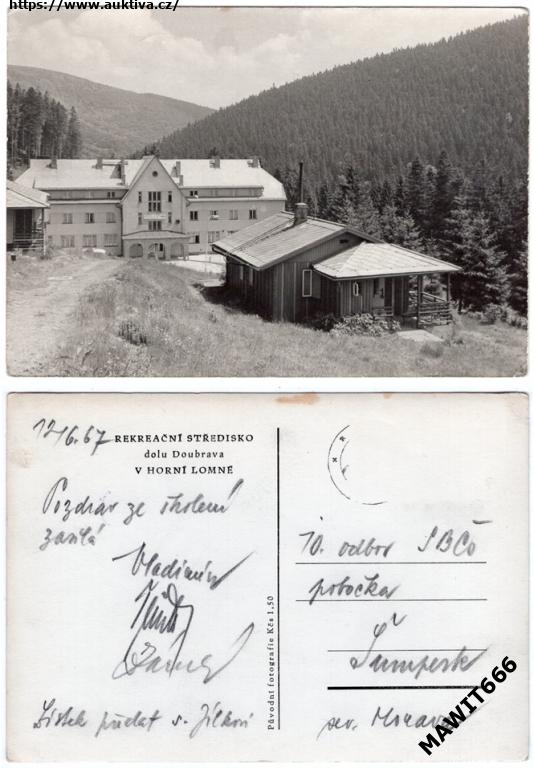 https://www.auktiva.cz/
12/6.67
REKREAČNÍ STŘEDISKO
dolu Doubrava
V HORNÍ LOMNÉ
Pozdrav ze školení
zasílá
Vladimír
Původní fotografie Kčs 1,50
10. odbor SBČS
pobočka
Šumperk
sev. Morava
Lístek předat s. Jílkovi
MAWIT666